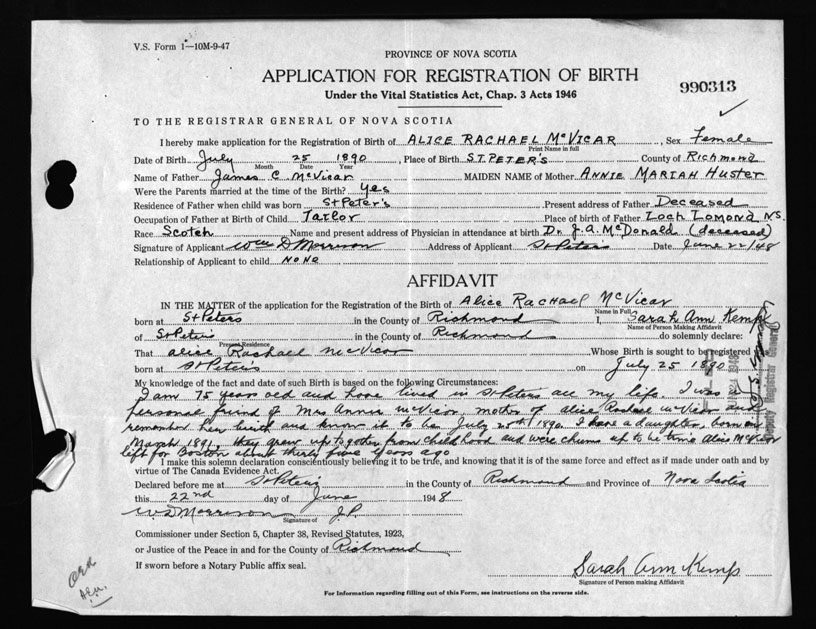 V.S. Form 1—10M-9-47
PROVINCE OF NOVA SCOTIA
APPLICATION FOR REGISTRATION OF BIRTH
990313
Under the Vital Statistics Act, Chap. 3 Acts 1946
TO THE REGISTRAR GENERAL OF NOVA SCOTIA
I hereby make application for the Registration of Birth of ALICE RACHAEL McVICAR, Sex Female
Print Name in full
Date of Birth July 25 1890, Place of Birth ST. PETER'S County of Richmond
Month Date Year
Name of Father James C McVicar MAIDEN NAME of Mother ANNIE MARIAH HUSTER
Were the Parents married at the time of the Birth? Yes
Residence of Father when child was born St Peter's Present address of Father Deceased
Occupation of Father at Birth of Child Tailor Place of birth of Father Loch Lomond NS.
Race Scotch Name and present address of Physician in attendance at birth Dr. J.A. McDonald (deceased)
Signature of Applicant Wm D Morrison Address of Applicant St Peters Date June 22/48
Relationship of Applicant to child NONE
AFFIDAVIT
IN THE MATTER of the application for the Registration of the Birth of Alice Rachael McVicar
Name in Full
born at St Peters in the County of Richmond I, Sarah Ann Kemp
Name of Person Making Affidavit
of St Peters in the County of Richmond do solemnly declare:
Present Residence
That Alice Rachael McVicar Whose Birth is sought to be registered
born at St Peter's on July 25 1890
My knowledge of the fact and date of such Birth is based on the following Circumstances:
I am 75 years old and have lived in St Peters all my life. I was a
personal friend of Mrs Annie McVicar, mother of Alice Rachael McVicar and
remember her birth and know it to be July 25th 1890. I have a daughter, born on
March 1891. they grew up together from childhood and were chums up to the time Alice McVicar
left for Boston about thirty five years ago
I make this solemn declaration conscientiously believing it to be true, and knowing that it is of the same force and effect as if made under oath and by
virtue of The Canada Evidence Act.
Declared before me at St Peters in the County of Richmond and Province of Nova Scotia
this 22nd day of June 1948
W D Morrison J.P.
Signature of
Commissioner under Section 5, Chapter 38, Revised Statutes, 1923,
or Justice of the Peace in and for the County of Richmond
If sworn before a Notary Public affix seal.
Sarah Ann Kemp
Signature of Person making Affidavit
For Information regarding filling out of this Form, see instructions on the reverse side.
Deputy Registrar General